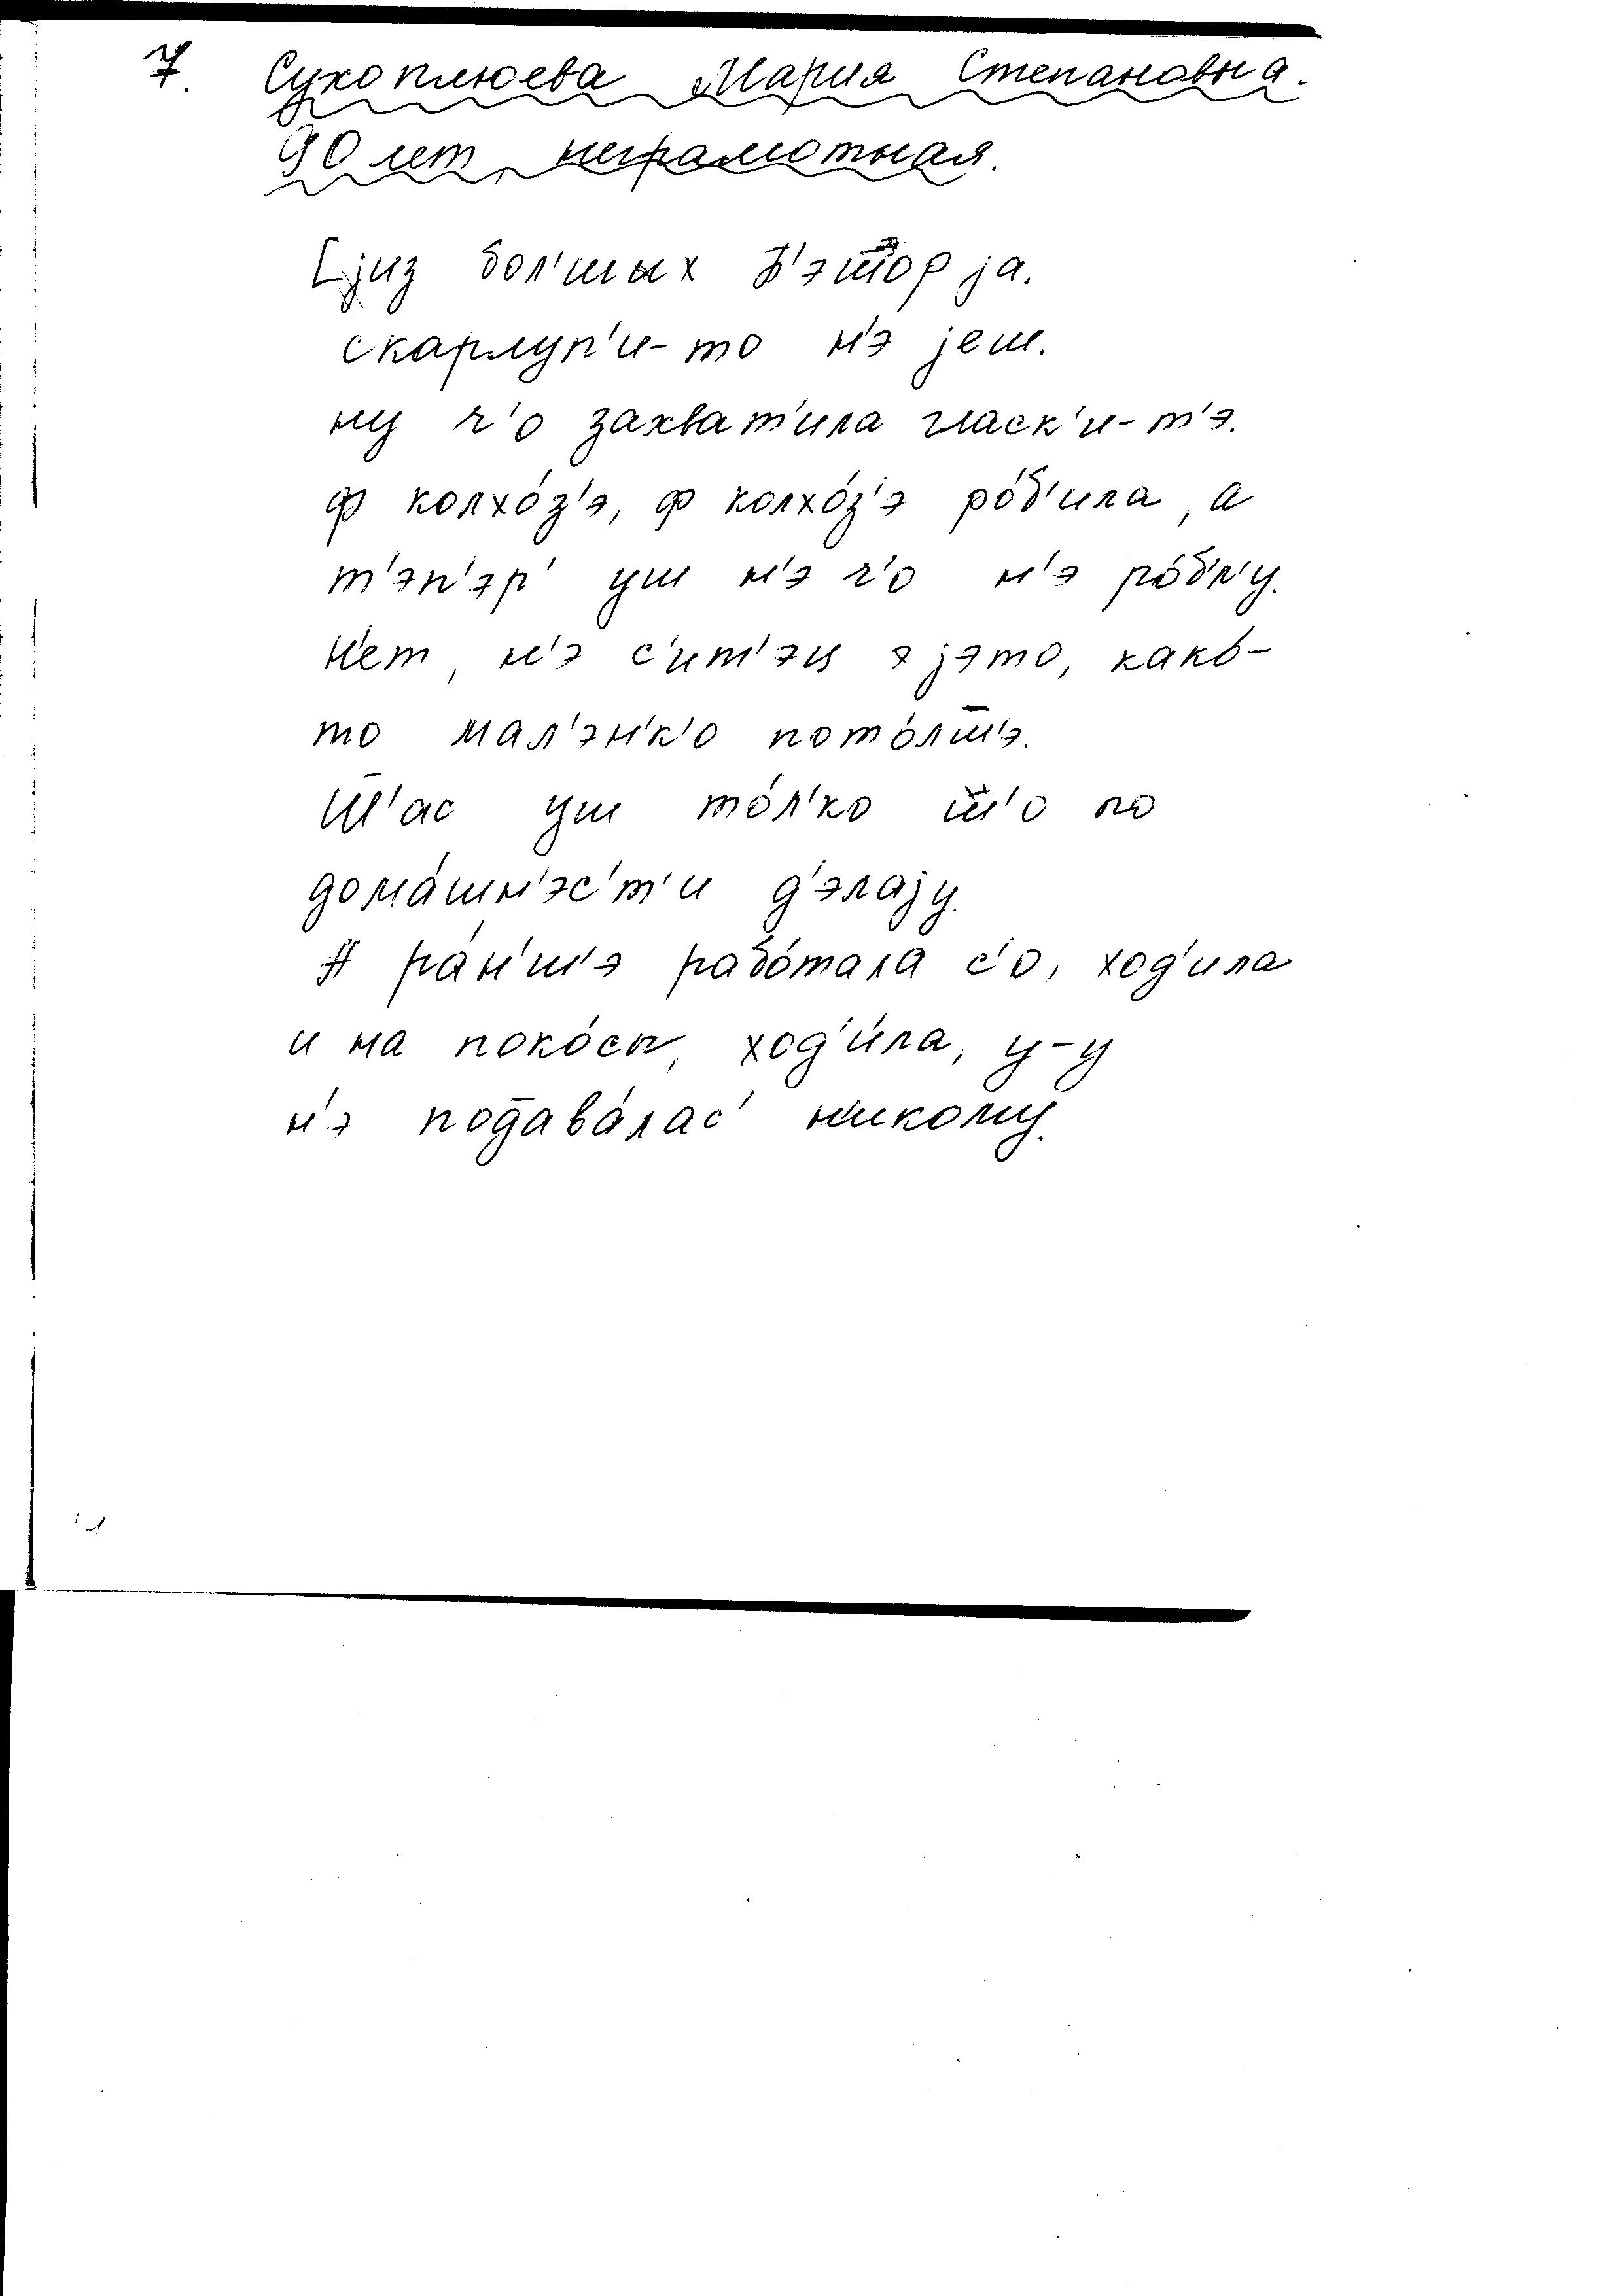 7. Сухоплюева Мария Степановна.
90 лет, неграмотная.
[jиз бол'шых б'эш̅ор jа.
скарлуп'и-то н'э jеш.
ну ч'о захват'ила гласк'и-т'э.
ф колхо́з'э, ф колхо́з'э ро́б'ила, а
т'эп'эр' уш н'э ч'о н'э ро́бл'у.
н'ет, н'э с'ит'эц э jэто, како́-
то мал'эн'к'о пото́лш̅'э.
Ш̅'ас уш то́л'ко ш̅'о по
дома́шн'эс'т'и д'элаjу.
А ра́н'ш'э рабо́тала с'о, ход'ила
и на поко́сы, ход'и́ла, у-у
н'э подава́лас' никому.